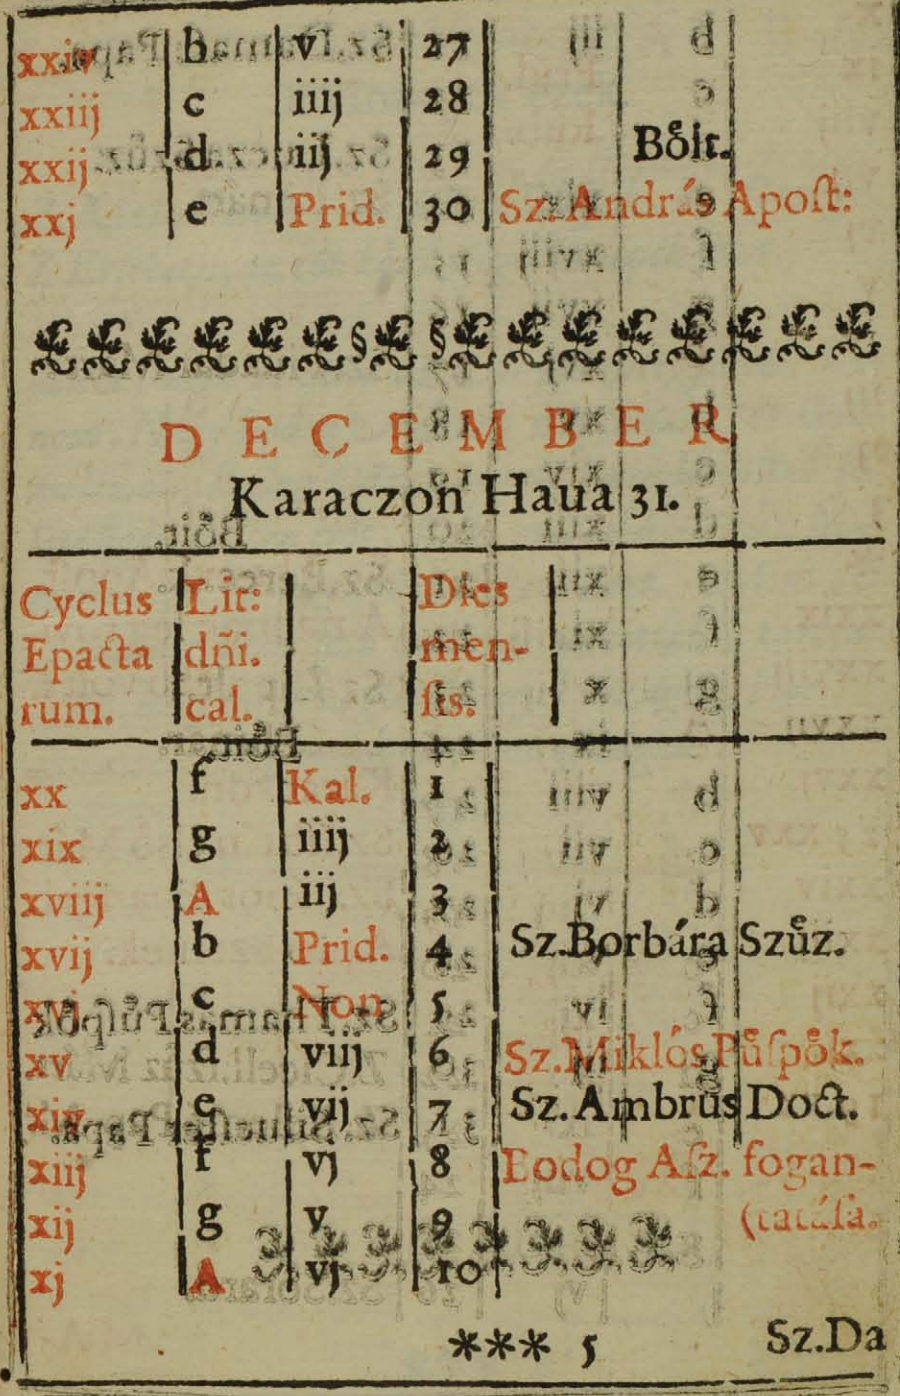 xxiv b v 27
xxiij c iiij 28
xxij d iij 29 Bo̊it.
xxj e Prid. 30 Sz. András Apoſt:
§ §
DECEMBER
Karaczon Haua 31.
Cyclus Lit: Dies
Epacta dñi. men-
rum. cal. ſis.
xx f Kal. 1
xix g iiij 2
xviij A iij 3
xvij b Prid. 4 Sz. Borbára Szůz.
xvj c Non 5
xv d viij 6 Sz. Miklós Půſpo̊k.
xiv e vij 7 Sz. Ambrus Doct.
xiij f vj 8 Bodog Aſz. fogan-
xij g v 9 (tatáſa.
xj A vj 10
*** 5 Sz. Da